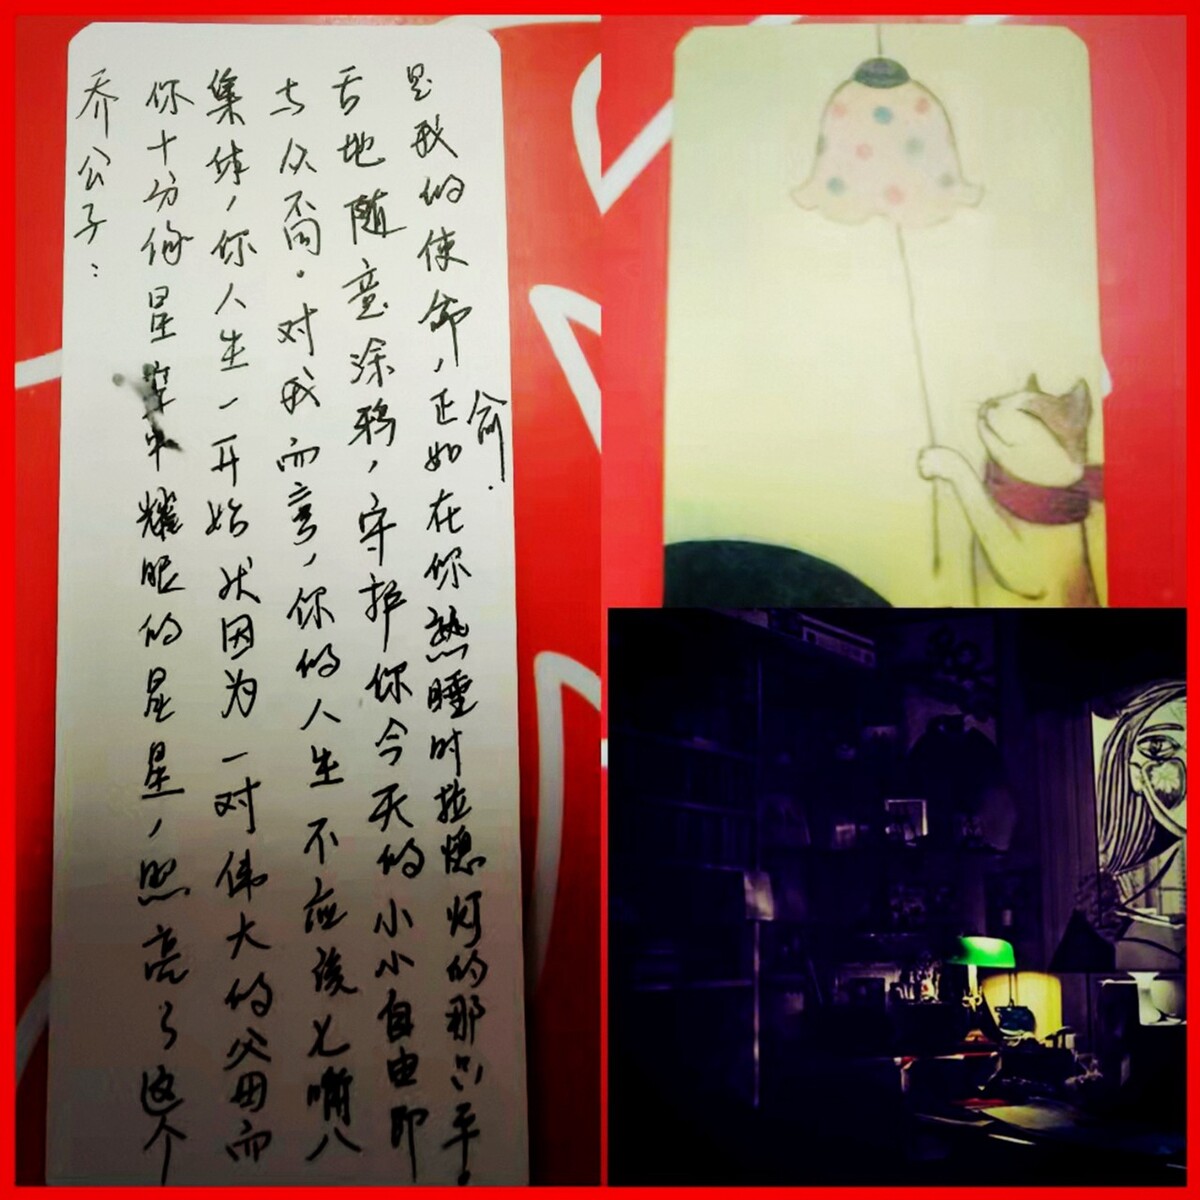 乔公子：
你十分像星空中耀眼的星星，照亮了这个
集体，你人生一开始就因为一对伟大的父母而
与众不同。对我而言，你的人生不应该七嘴八
舌地随意涂鸦，守护你今天的小小自由即
是我的使命，正如在你熟睡时拉熄灯的那只手。
俞.